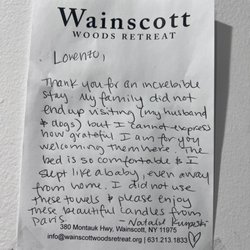 Wainscott
WOODS RETREAT
Lorenzo,
Thank you for an incredible
stay. My family did not
end up visiting (my husband
& dogs) but I cannot express
how grateful I am for you
welcoming them here. The
bed is so comfortable & I
slept like a baby, even away
from home. I did not use
these towels & please enjoy
these beautiful candles from
Paris. - Natalie
380 Montauk Hwy, Wainscott, NY 11975
info@wainscottwoodsretreat.org | 631.213.1833